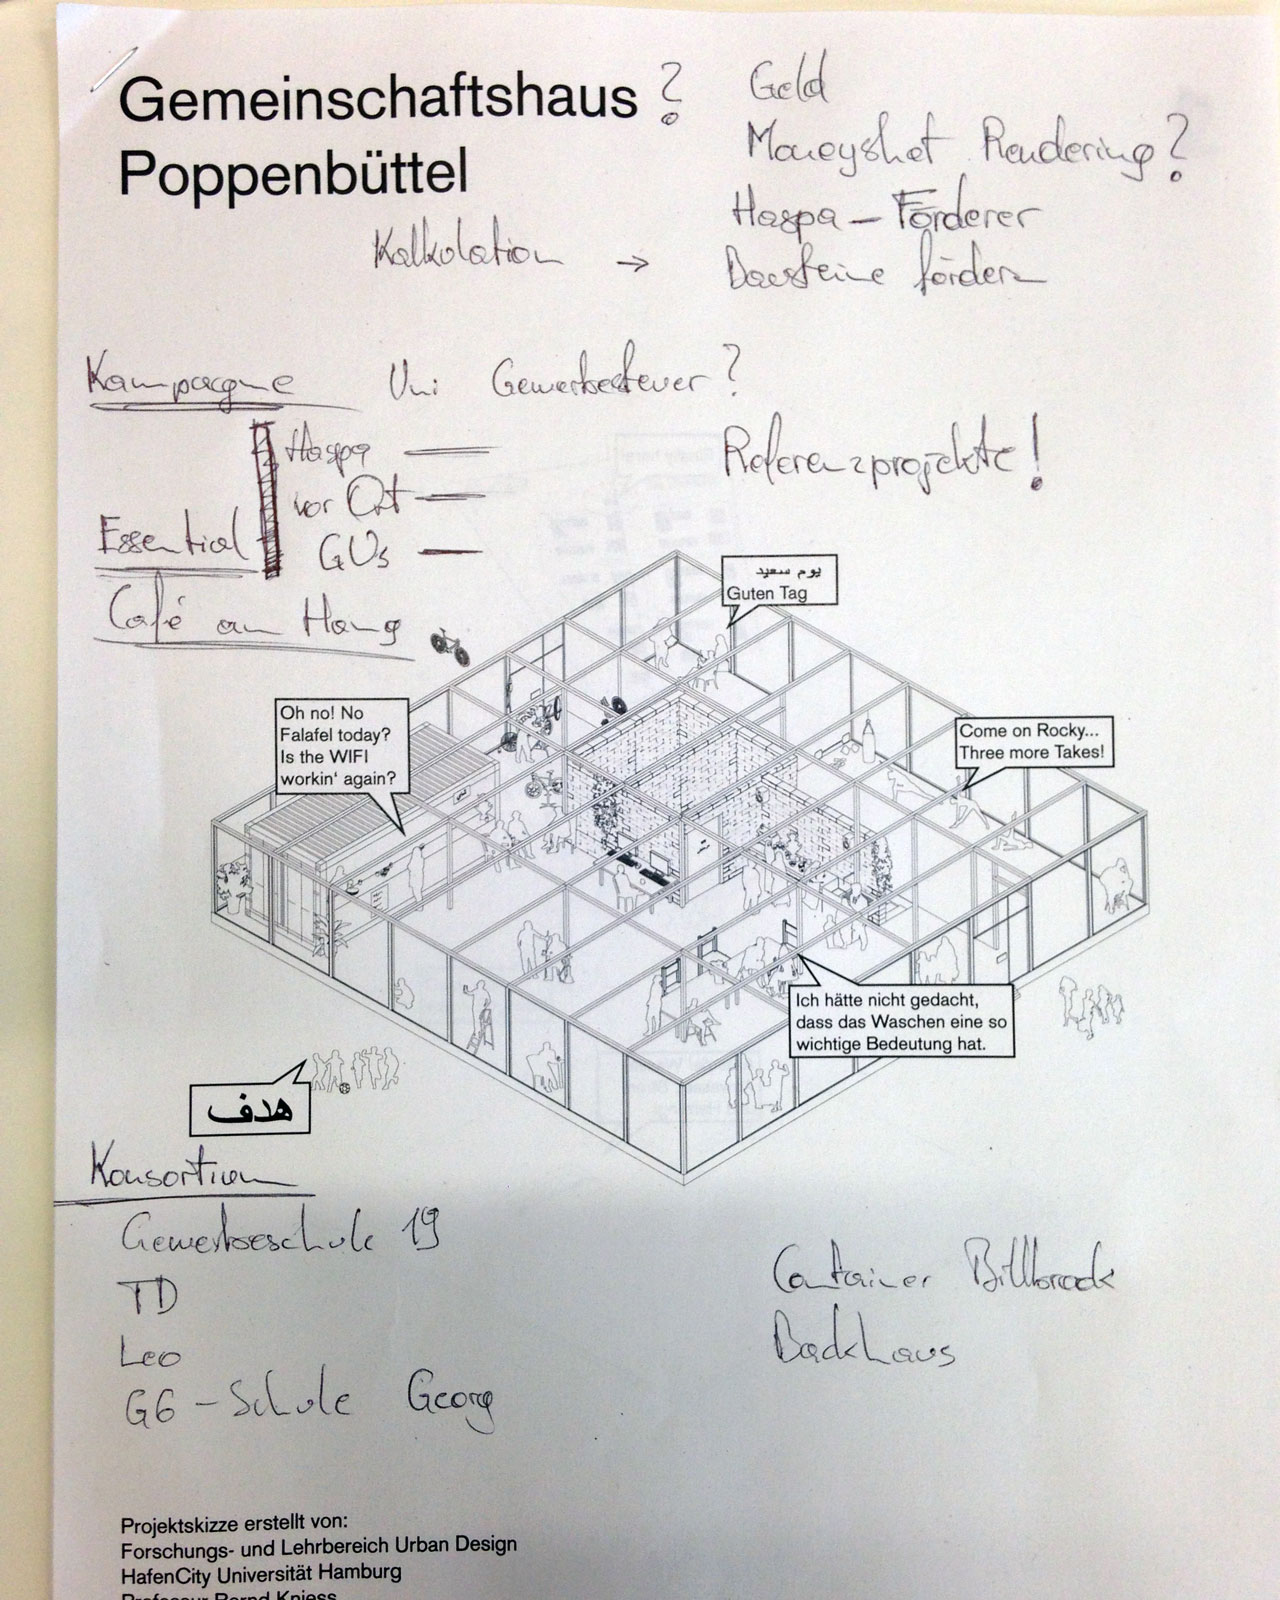 Gemeinschaftshaus ?
Poppenbüttel
Geld
Moneyshot Rendering?
Haspa – Förderer
Kalkulation → Bausteine fördern
Kampagne Uni Gewerbesteuer?
Haspa
vor Ort
GUs
Referenzprojekte!
Essential
Café am Hang
يوم سعيد
Guten Tag
Oh no! No
Falafel today?
Is the WIFI
workin' again?
Come on Rocky...
Three more Takes!
Ich hätte nicht gedacht,
dass das Waschen eine so
wichtige Bedeutung hat.
هدف
Konsortium
Gewerbeschule 19
TD
Leo
G6 – Schule Georg
Container Billbrook
Backhaus
Projektskizze erstellt von:
Forschungs- und Lehrbereich Urban Design
HafenCity Universität Hamburg
Professur Bernd Kniess